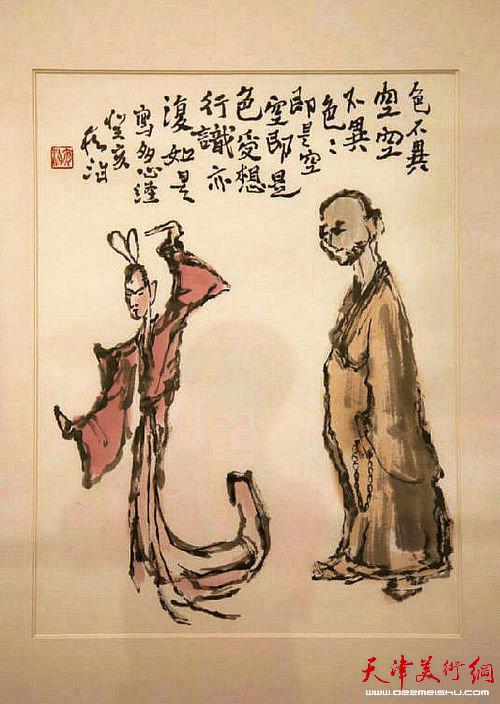 色不異
空空
不異
色〻
即是空
空即是
色受想
行識亦
復如是
寫多心經
癸亥
天津美術網
www.022meishu.com